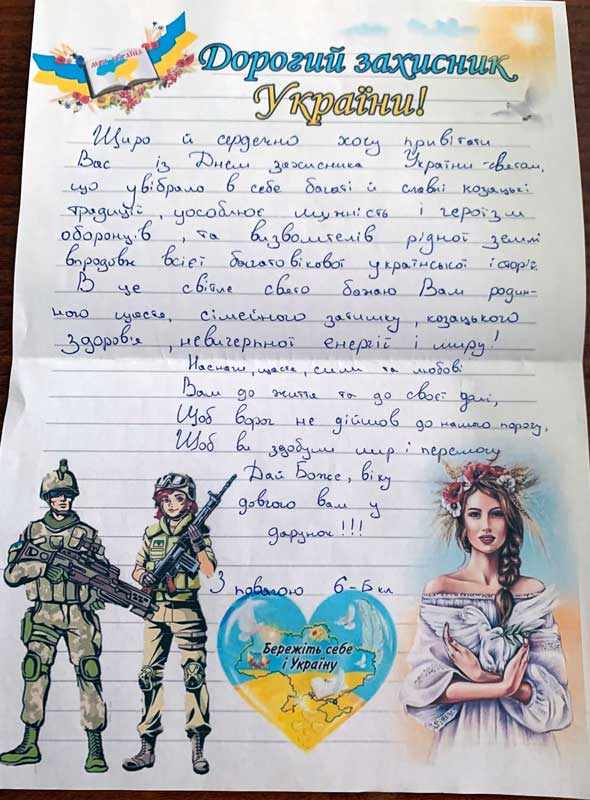 Дорогий захисник
України!
Щиро й сердечно хочу привітати
Вас із Днем захисника України-святом,
що увібрало в себе багаті й славні козацькі
традиції, уособлює мужність і героїзм
оборонців, та визволителів рідної землі
впродовж всієї багатовікової української історії.
В це світле свято бажаю Вам родин-
ного щастя, сімейного затишку, козацького
здоров'я, невичерпної енергії і миру!
Наснаги, щастя, сили та любові
Вам до життя та до своєї долі,
Щоб ворог не дійшов до нашого порогу,
Щоб ви здобули мир і перемогу
Дай Боже, віку
довгого вам у
дарунок!!!
З повагою 6-Б кл
Бережіть себе
і Україну